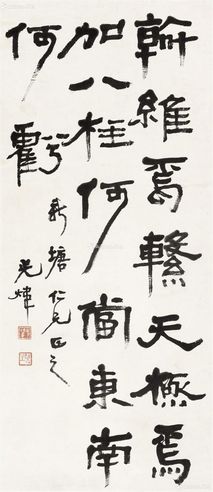 斡維焉繫天極焉
加八柱何當東南
何虧
新塘仁兄正之
光煒